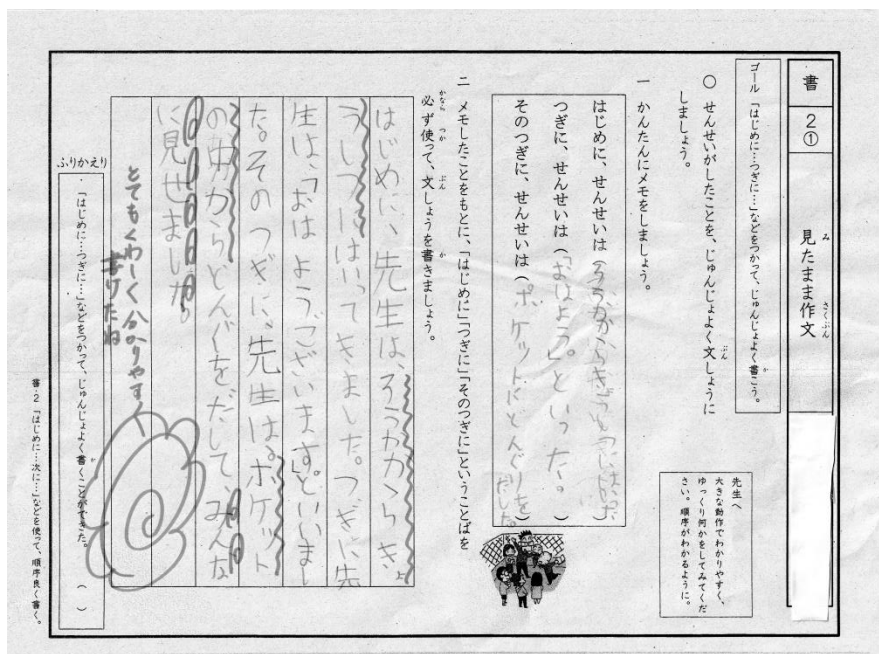 書
2①
見たまま作文
み
さくぶん
ゴール 「はじめに…つぎに…」などをつかって、じゅんじょよく書こう。
か
○ せんせいがしたことを、じゅんじょよく文しょうに
ぶん
しましょう。
先生へ
大きな動作でわかりやすく、
ゆっくり何かをしてみてくだ
さい。順序がわかるように。
一 かんたんにメモをしましょう。
はじめに、せんせいは（ろうかからきょうしつにはいった）
つぎに、せんせいは（「おはよう。」といった。）
そのつぎに、せんせいは（ポケットにどんぐりを
だした）
二 メモしたことをもとに、「はじめに」「つぎに」「そのつぎに」ということばを
必ず使って、文しょうを書きましょう。
かなら つか ぶん か
はじめに、先生は、ろうかからきょ
うしつにはいってきました。つぎに先
生は、「おはようございます。」といいまし
た。そのつぎに、先生は、ポケット
の中からどんぐりをだして、みんな
に見せました。
とてもくわしく分かりやすく
書けたね
ふりかえり
・「はじめに…つぎに…」などをつかって、じゅんじょよく書くことができた。（ ）
か
書-2 「はじめに…次に…」などを使って、順序良く書く。